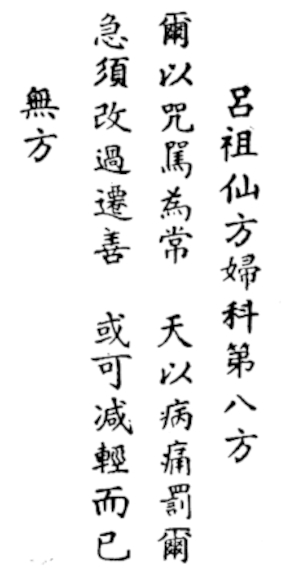 呂祖仙方婦科第八方
爾以咒罵為常　天以病痛罰爾
急須改過遷善　或可減輕而已
無方